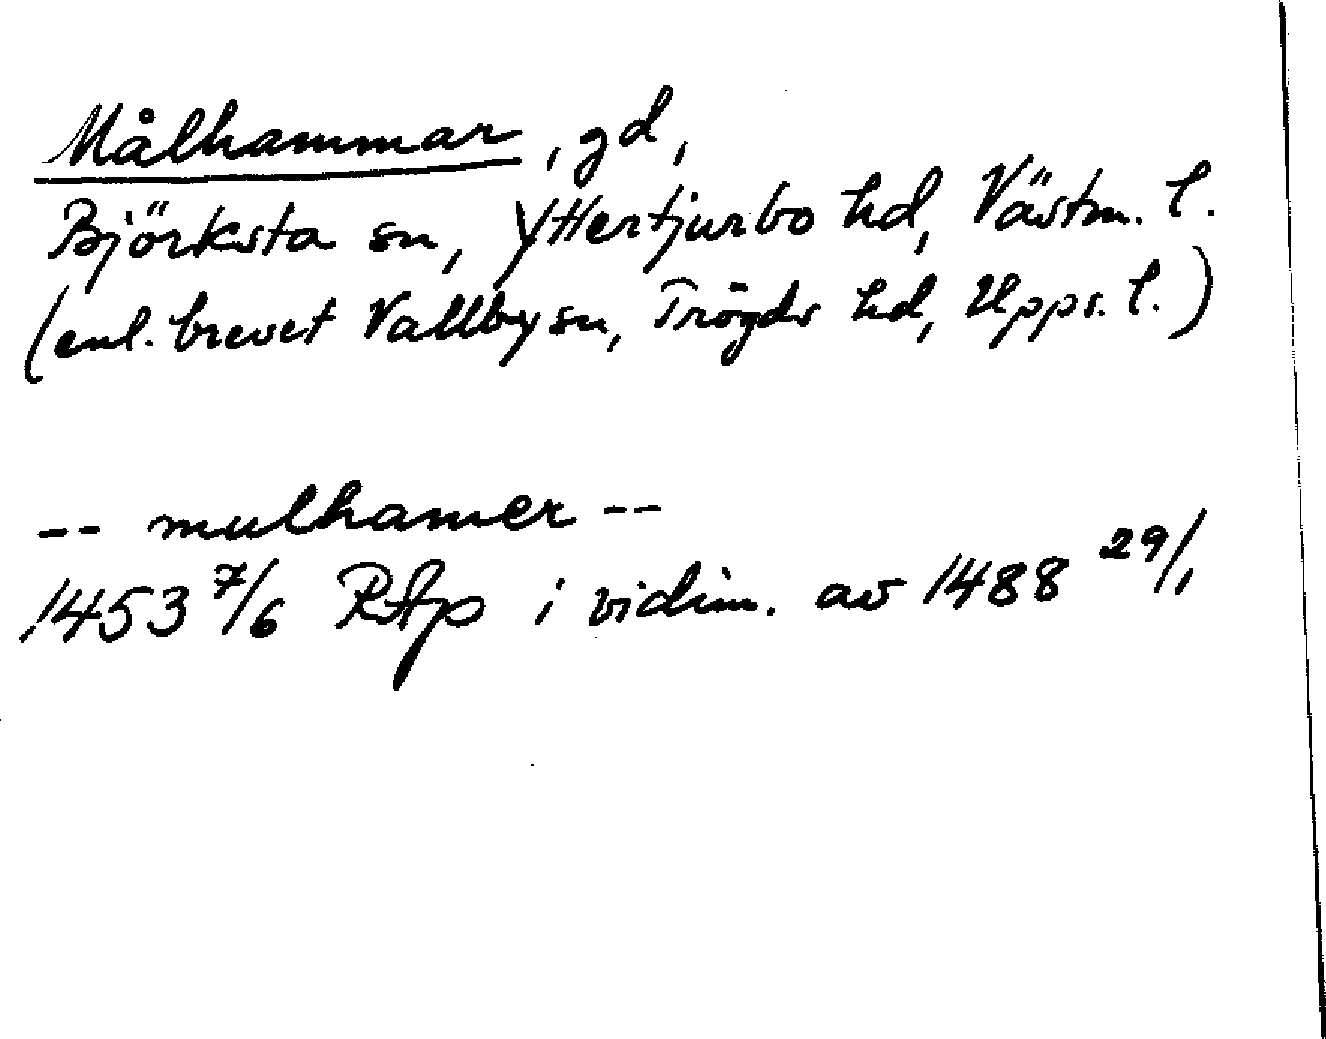 Målhammar, gd,
Björksta sn, Yttertjurbo hd, Västm. l.
(enl. brevet Vallby sn, Trögds hd, Upps. l.)
-- mulhamer --
1453 7/6 RAp i vidim. av 1488 29/1